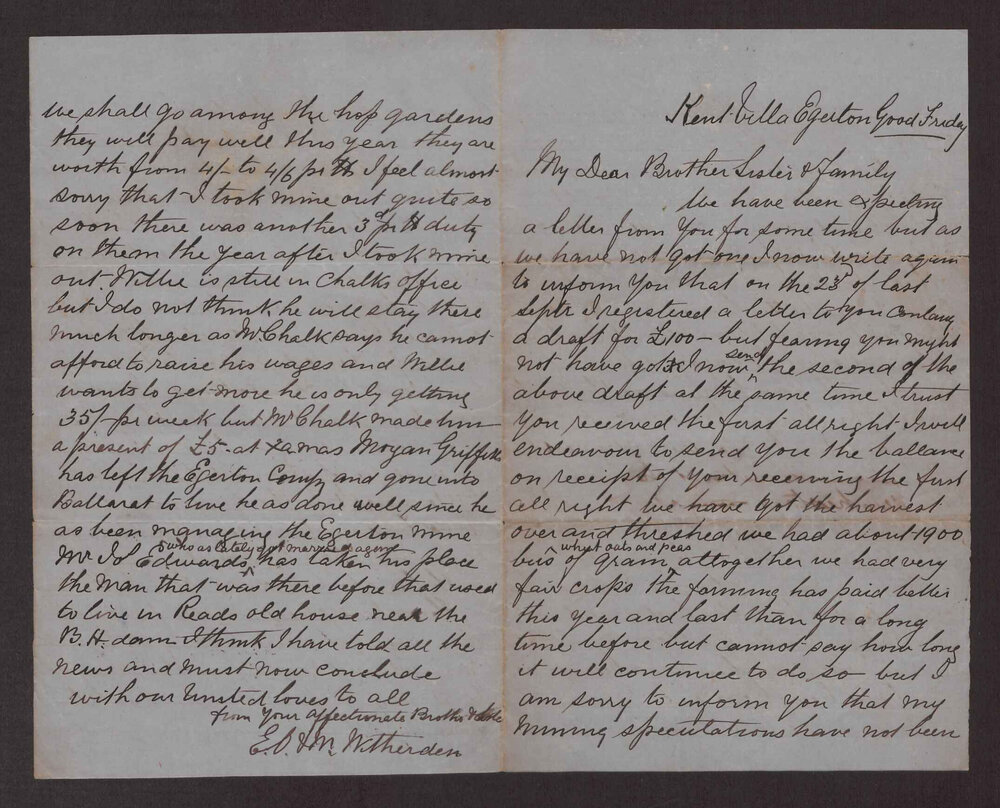 Kent Villa Egerton Good Friday
My Dear Brother Sister & Family
We have been expecting
a letter from you for some time but as
we have not got one I now write again
to inform you that on the 23d of last
Septr I registered a letter to you
a draft for £100 - but fearing you might
not have got it I now send the second of the
above draft at the same time I trust
you received the first all right I will
endeavour to send you the ballance
on receipt of your receiving the first
all right we have got the harvest
over and threshed we had about 1900
bus of grain wheat oats and peas altogether we had very
fair crops the farming has paid better
this year and last than for a long
time before but cannot say how long
it will continue to do so but I
am sorry to inform you that my
mining speculations have not been
we shall go among the hop gardens
they will pay well this year they are
worth from 4/- to 4/6 pr lb I feel almost
sorry that I took mine out quite so
soon there was another 3d pr lb duty
on them the year after I took mine
out. Willie is still in Chalks office
but I do not think he will stay there
much longer as Mr Chalk says he cannot
afford to raise his wages and Willie
wants to get more he is only getting
35/- pr week but Mr Chalk made him
a present of £5 - at Xamas Morgan Griffiths
has left the Egerton Comp, and gone into
Ballarat to live he as done well since he
as been managing the Egerton mine
Mr Edwards who as lately got married again has taken his place
the man that was there before that used
to live in Reads old house near the
B.H. dam I think I have told all the
news and must now conclude
with our United loves to all
from your affectionate Brother &
E.O. & M. Witherden